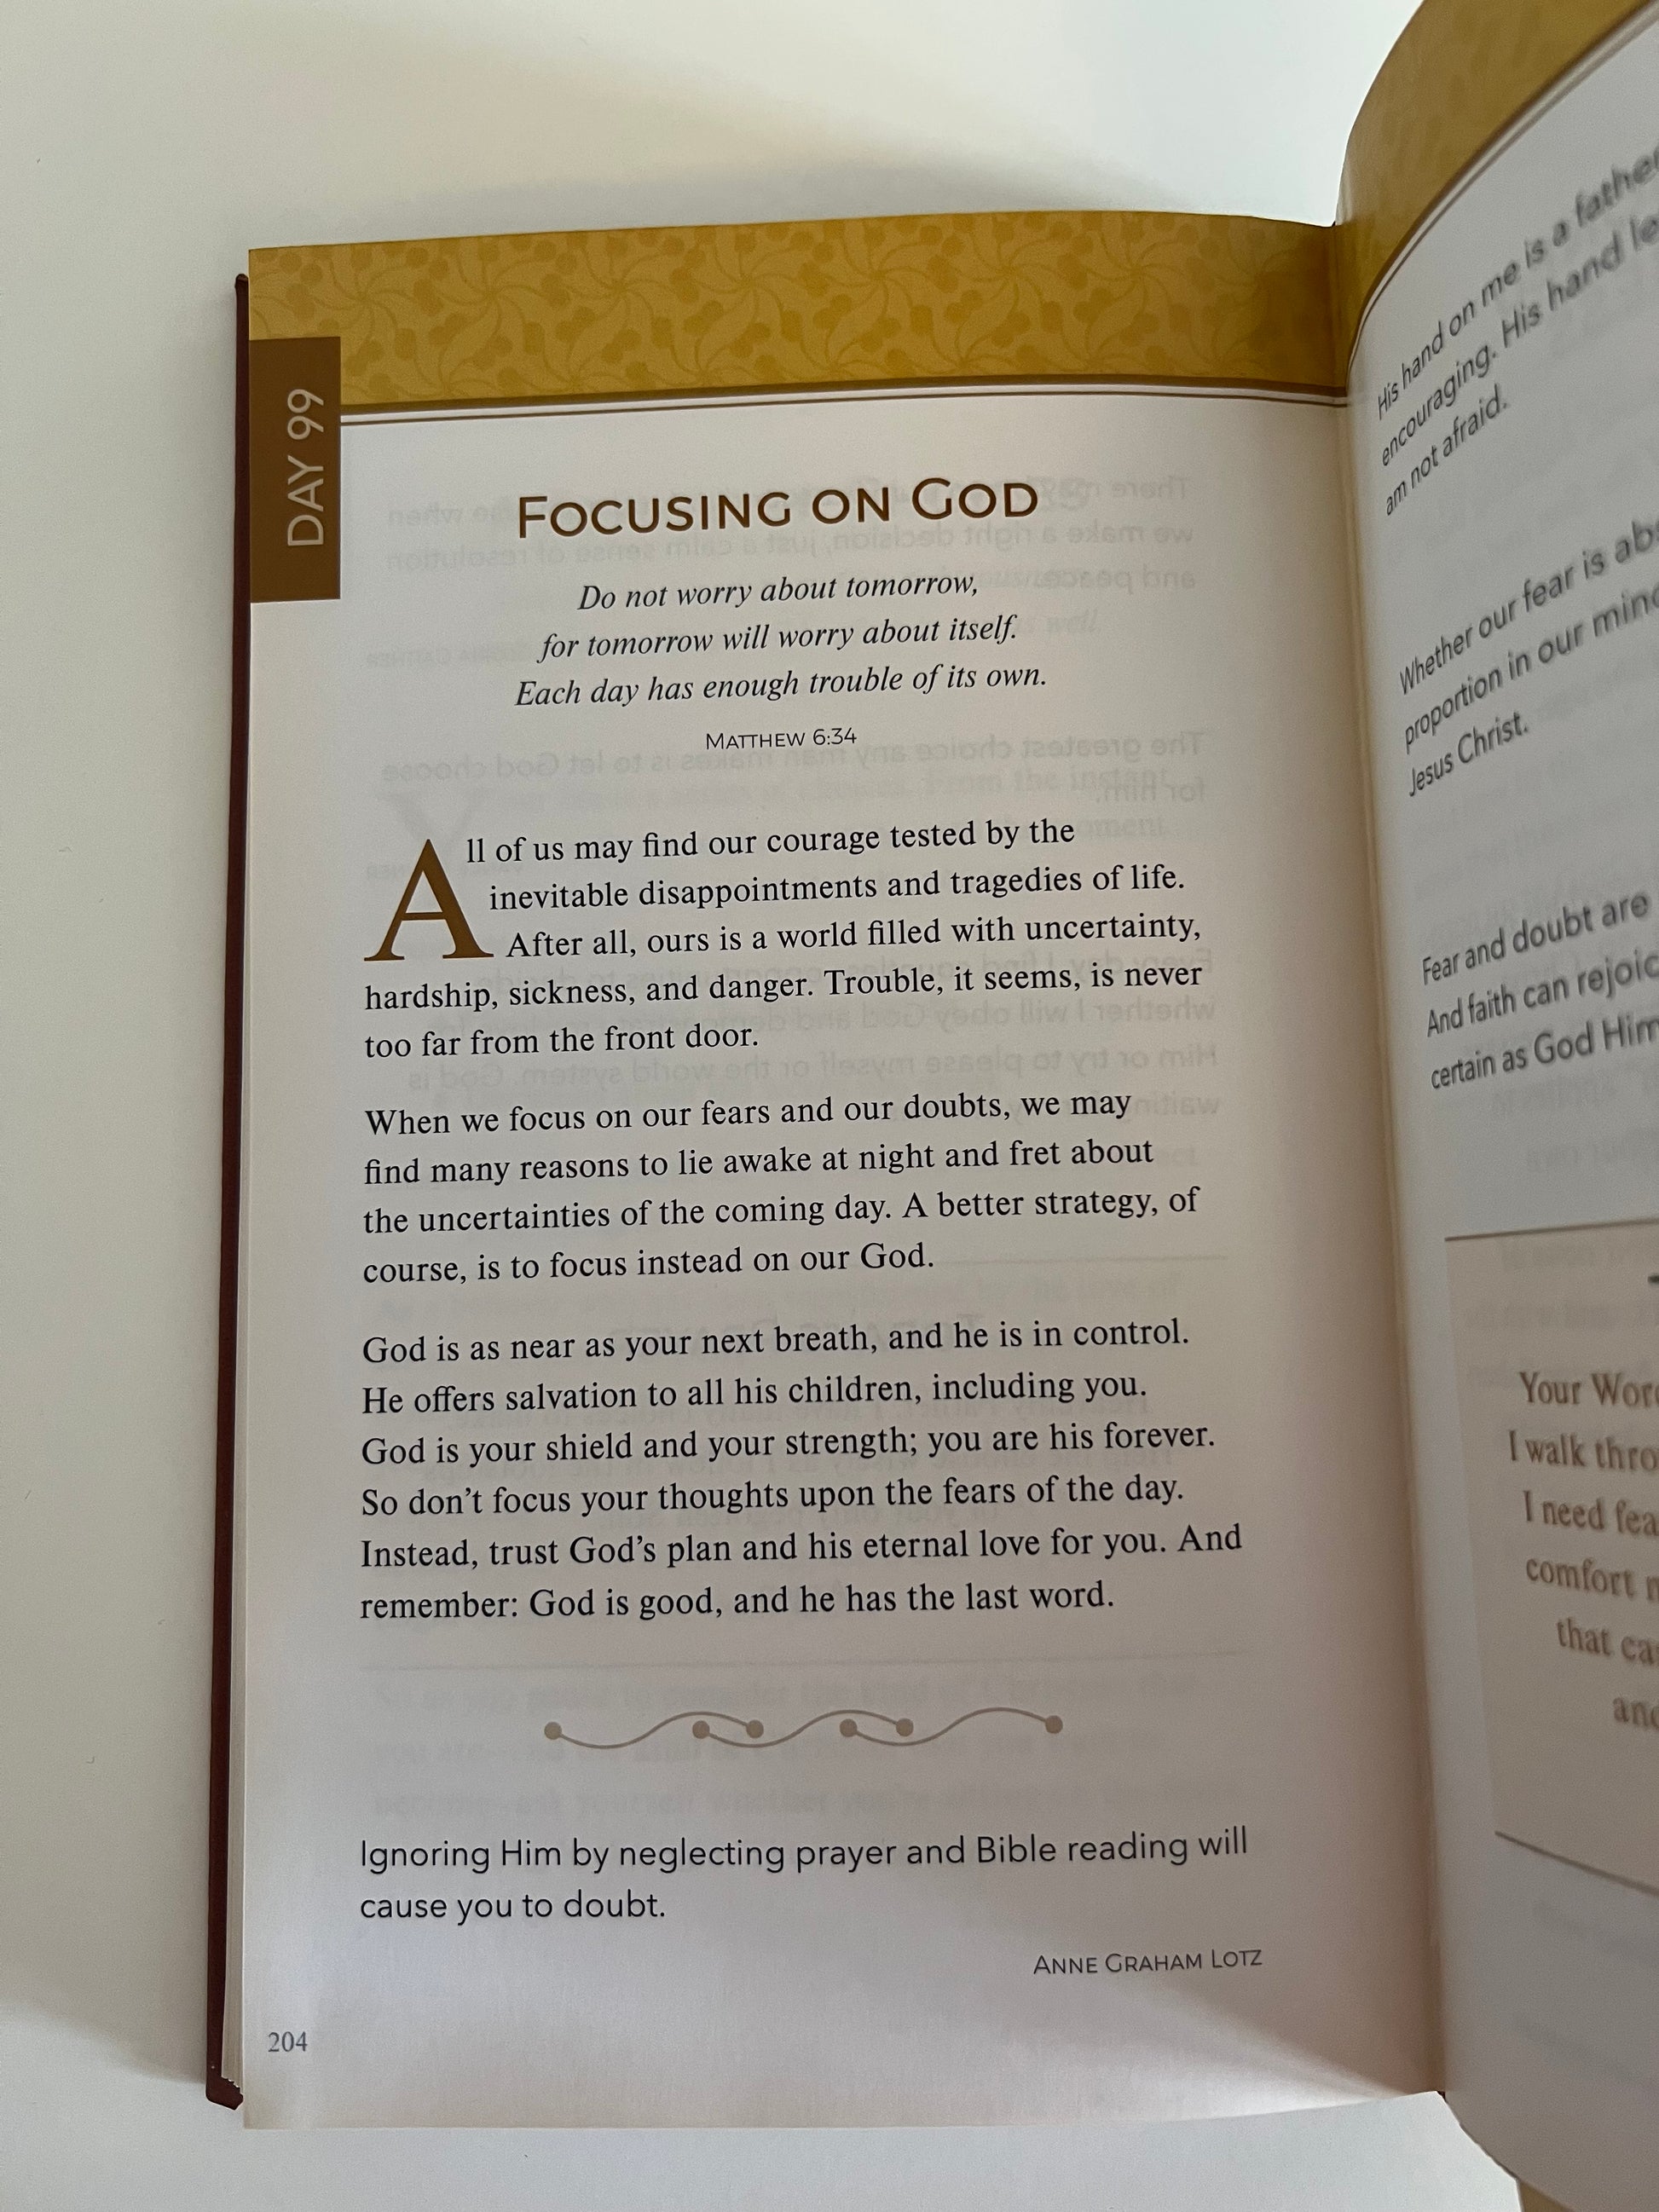 DAY 99
FOCUSING ON GOD
Do not worry about tomorrow,
for tomorrow will worry about itself.
Each day has enough trouble of its own.
MATTHEW 6:34
All of us may find our courage tested by the
inevitable disappointments and tragedies of life.
After all, ours is a world filled with uncertainty,
hardship, sickness, and danger. Trouble, it seems, is never
too far from the front door.
When we focus on our fears and our doubts, we may
find many reasons to lie awake at night and fret about
the uncertainties of the coming day. A better strategy, of
course, is to focus instead on our God.
God is as near as your next breath, and he is in control.
He offers salvation to all his children, including you.
God is your shield and your strength; you are his forever.
So don’t focus your thoughts upon the fears of the day.
Instead, trust God’s plan and his eternal love for you. And
remember: God is good, and he has the last word.
Ignoring Him by neglecting prayer and Bible reading will
cause you to doubt.
ANNE GRAHAM LOTZ
204
His hand on me is a
encouraging. His hand
am not afraid.
Whether our fear is
proportion in our
Jesus Christ.
Fear and doubt are
And faith can
certain as God
Your
I walk
I need
comfort
that